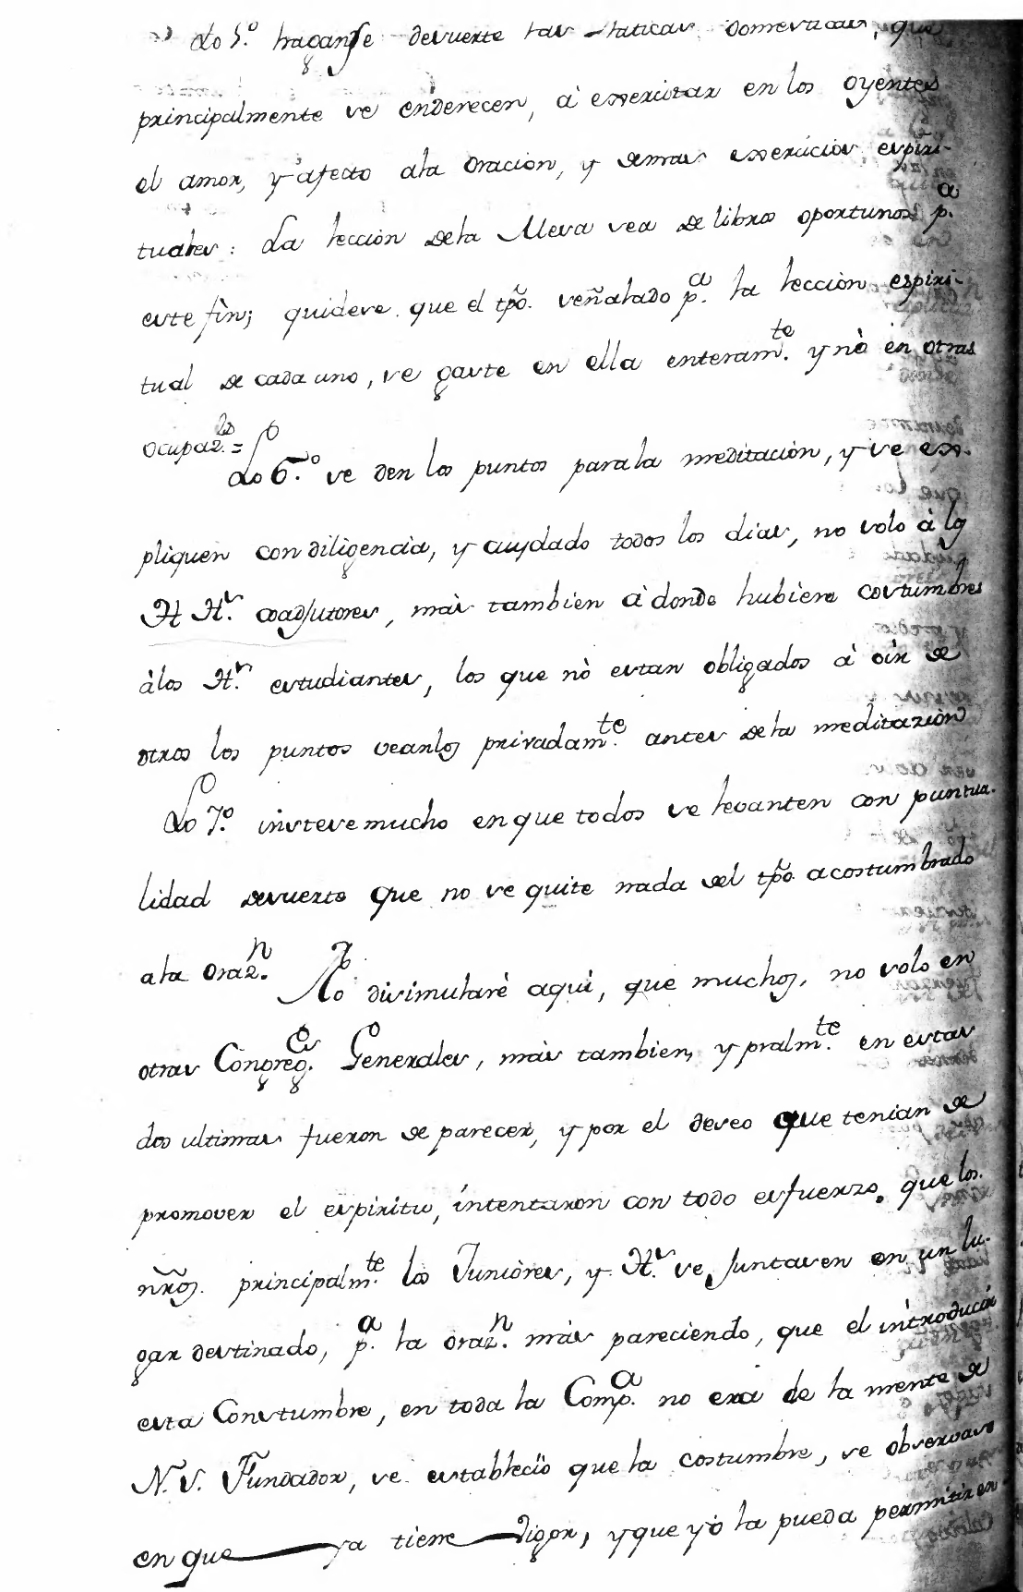 Lo 5.º haganse desuerte las Platicas domesticas, que
principalmente se enderecen, à exercitar en los oyentes
el amor, y afecto ala Oracion, y demas exercicios espiri-
tuales: La leccion dela Mesa sea de libros oportunos p.ª
este fin; quidese que el tpõ. señalado p.ª la leccion espiri-
tual de cada uno, se gaste en ella enteram.te y nò en otras
ocupaz.s =
Lo 6.º se den los puntos parala meditacion, y se ex-
pliquen con diligencia, y cuydado todos los dias, no solo à los
HH.s coadjutores, màs tambien à donde hubiere costumbres
àlos H.s estudiantes, los que nò estan obligados à oir de
otros los puntos veanlos privadam.te antes dela meditazion
Lo 7.º instese mucho en que todos se levanten con puntua-
lidad desuerte que no se quite nada del tpõ. acostumbrado
ala Oraz.n No disimularè aqui, que muchos, no solo en
otras Congreg.es Generales, màs tambien, y pralm.te en estas
dos ultimas fueron de parecer, y por el deseo que tenian de
promover el espiritu, intentaron con todo esfuerzo, que los
nr̃os. principalm.te los Juniòres, y H.s se juntasen en un lu-
gar destinado, p.ª la oraz.n màs pareciendo, que el introducir
esta Constumbre, en toda la Comp.ª no era de la mente de
N. S. Fundador, se estableciò que la costumbre, se observase
en que ya tiene Vigor, y que yò la pueda permitir en